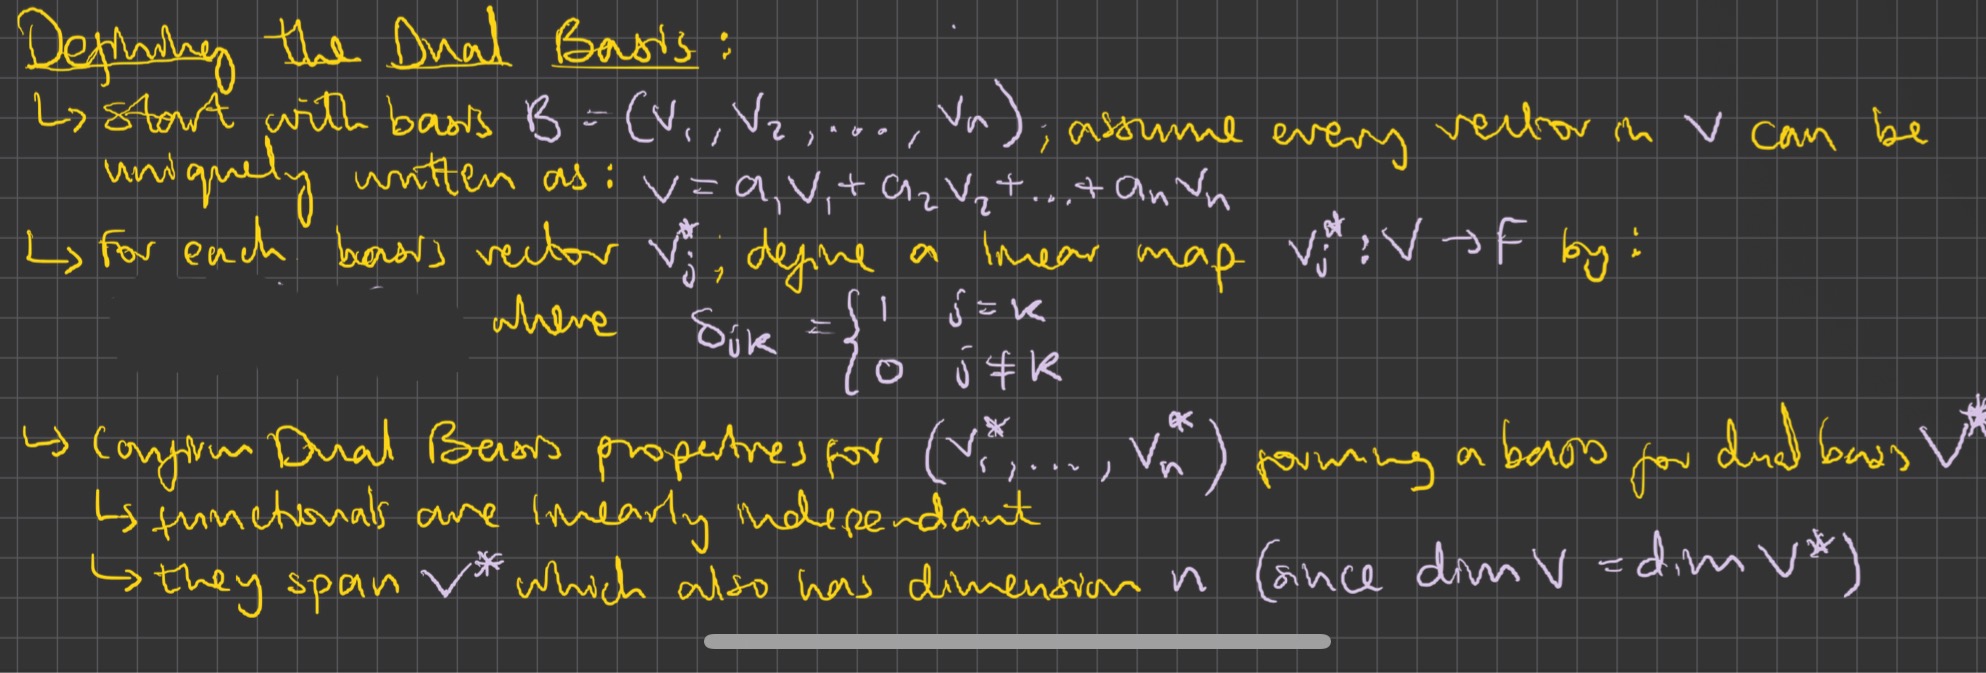 Defining the Dual Basis:
↳ start with basis B = (v₁, v₂, ...., vₙ); assume every vector in V can be
uniquely written as: v = a₁v₁ + a₂v₂ + ... + aₙvₙ
↳ For each basis vector vⱼ*; define a linear map vⱼ* : V → F by:
where δⱼₖ = { 1 j = k
0 j ≠ k
↳ Confirm Dual Basis properties for (v₁*, ...., vₙ*) forming a basis for dual basis V*
↳ functionals are linearly independant
↳ they span V* which also has dimension n (since dim V = dim V*)